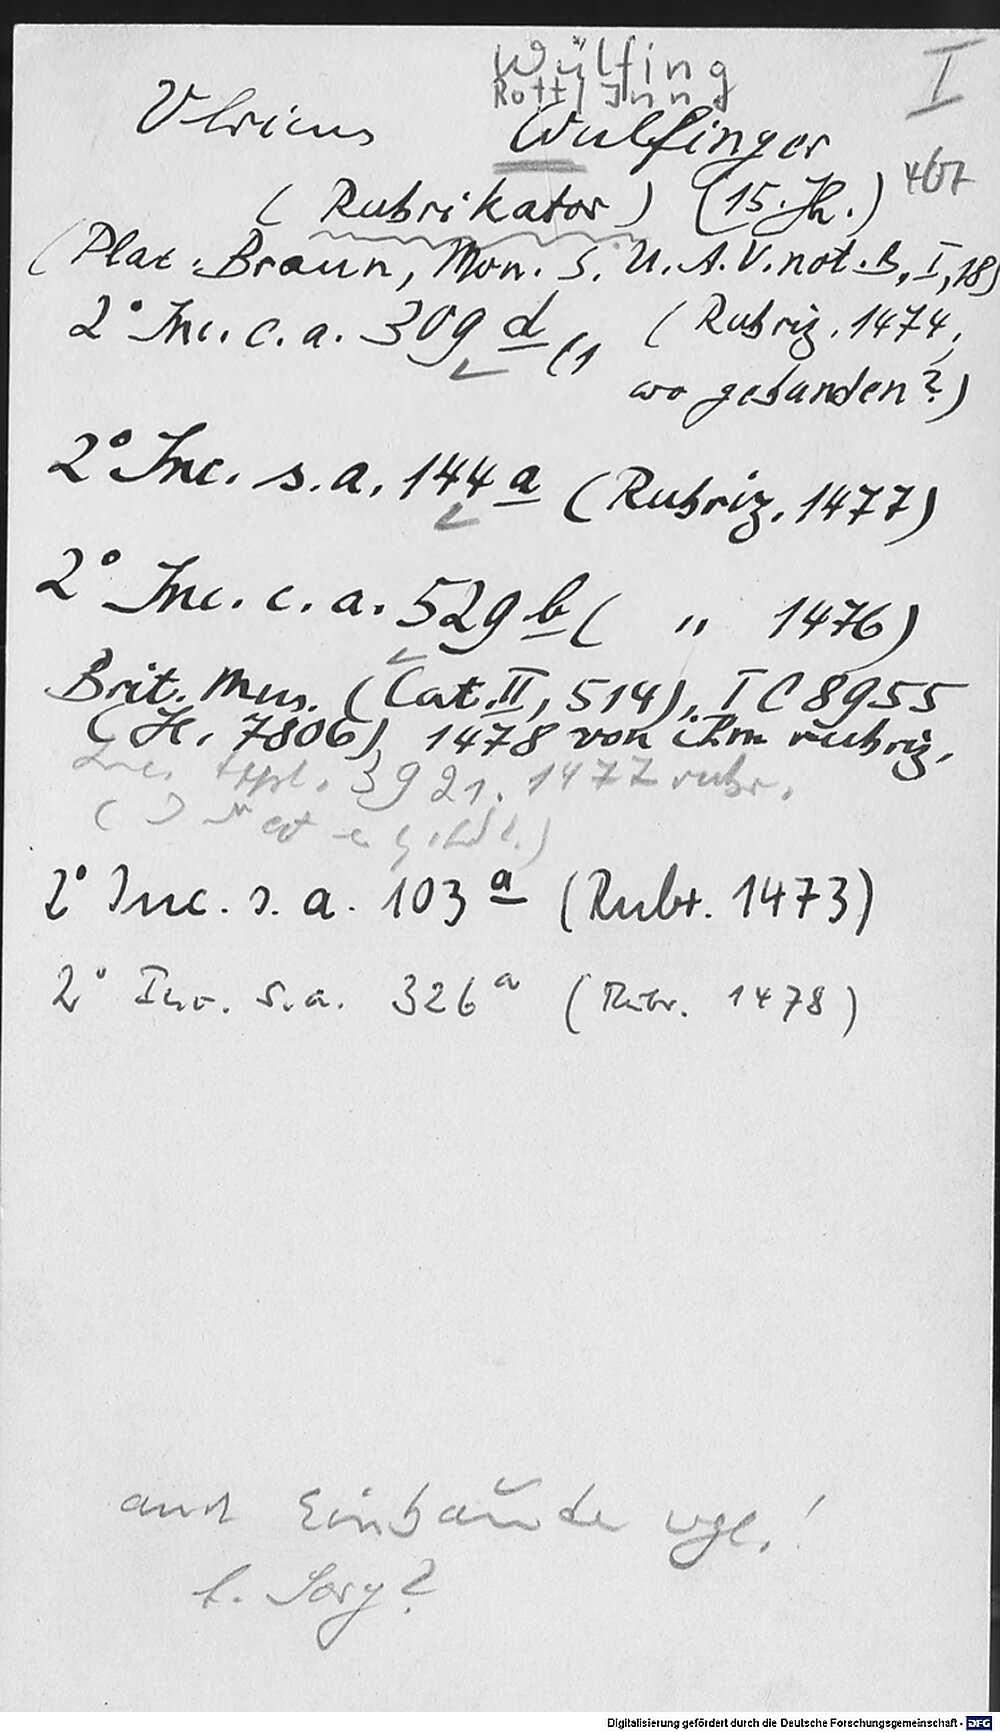 Wülfing
Rott / Inn
I
Ulricus Wulfinger
467
(Rubrikator) (15. Jh.)
(Plac. Braun, Mon. S. U. A. V. not. B, I, 18)
2° Inc. c. a. 309 d (1 (Rubriz. 1474,
wo gebunden?)
2° Inc. s. a. 144 a (Rubriz. 1477)
2° Inc. c. a. 529 b ( " 1476)
Brit. Mus. (Cat. II, 514), IC 8955
(H. 7806), 1478 von ihm rubriz.
Inc. typl. 3921. 1477 rubr.
2° Inc. s. a. 103 a (Rubr. 1473)
2° Inc. s. a. 326 a (Rubr. 1478)
auch Einbände vgl.!
Digitalisierung gefördert durch die Deutsche Forschungsgemeinschaft - DFG